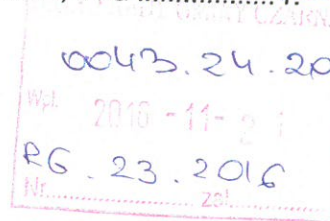 GMINY CZARN
0043.24.20
Wpł. 2016 -11- 2 1
RG.23.2016
Nr............ zał............